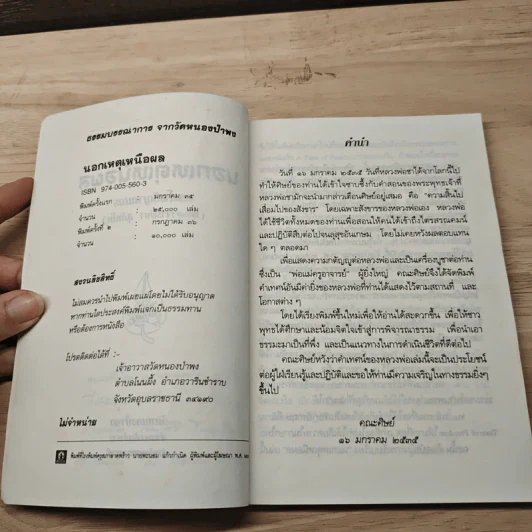 ธรรมบรรณาการ จากวัดหนองป่าพง
นอกเหตุเหนือผล
ISBN 974-005-560-3
พิมพ์ครั้งแรก : มกราคม ๓๕
จำนวน : ๒๕,๐๐๐ เล่ม
พิมพ์ครั้งที่ ๒ : กรกฎาคม ๓๖
จำนวน : ๑๐,๐๐๐ เล่ม
สงวนลิขสิทธิ์
ไม่สมควรนำไปพิมพ์เผยแผ่โดยไม่ได้รับอนุญาต
หากท่านใดประสงค์พิมพ์แจกเป็นธรรมทาน
หรือต้องการหนังสือ
โปรดติดต่อได้ที่ :-
เจ้าอาวาสวัดหนองป่าพง
ตำบลโนนผึ้ง อำเภอวารินชำราบ
จังหวัดอุบลราชธานี ๓๔๑๙๐
ไม่จำหน่าย
คำนำ
วันที่ ๑๖ มกราคม ๒๕๓๕ วันที่หลวงพ่อชาได้จากโลกนี้ไป
ทำให้ศิษย์ของท่านได้เข้าใจซาบซึ้งกับคำสอนของพระพุทธเจ้าที่
หลวงพ่อชามักจะนำมากล่าวเตือนศิษย์อยู่เสมอ คือ “ความสิ้นไป
เสื่อมไปของสังขาร” โดยเฉพาะสังขารของหลวงพ่อเอง หลวงพ่อ
ได้ใช้ชีวิตทั้งหมดของท่านเพื่อสอนให้คนได้เข้าถึงไตรสรณคมน์
และปฏิบัติสืบต่อไปจนลุสุขอันเกษม โดยไม่เคยหวังผลตอบแทน
ใด ๆ ตลอดมา
เพื่อแสดงความกตัญญูต่อหลวงพ่อและเป็นเครื่องบูชาต่อท่าน
ซึ่งเป็น “พ่อแม่ครูอาจารย์” ผู้ยิ่งใหญ่ คณะศิษย์จึงได้จัดพิมพ์
คำเทศน์อันมีค่ายิ่งของหลวงพ่อที่ท่านได้แสดงไว้ตามสถานที่ และ
โอกาสต่าง ๆ
โดยได้เรียงพิมพ์ขึ้นใหม่เพื่อให้อ่านได้สะดวกขึ้น เพื่อให้ชาว
พุทธได้ศึกษาและน้อมจิตใจเข้าสู่การพิจารณาธรรม เพื่อนำเอา
ธรรมะมาเป็นที่พึ่ง และเป็นแนวทางในการดำเนินชีวิตที่ดีต่อไป
คณะศิษย์หวังว่าคำเทศน์ของหลวงพ่อเล่มนี้จะเป็นประโยชน์
ต่อผู้ใฝ่เรียนรู้และปฏิบัติและขอให้ท่านมีความเจริญในทางธรรมยิ่งๆ
ขึ้นไป
คณะศิษย์
๑๖ มกราคม ๒๕๓๕